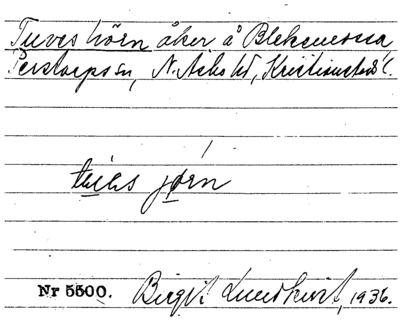 Tuves hörn åker å Blekemossa
Perstorps sn, N. Åsbo hd, Kristianstads l.
Nr 5500. Birgit Lundkvist, 1936.